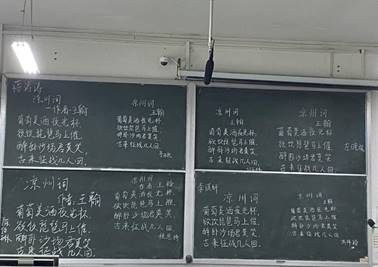 凉州词
作者:王翰
葡萄美酒夜光杯,
欲饮琵琶马上催,
醉卧沙场君莫笑,
古来征战几人回。
凉州词
王翰
葡萄美酒夜光杯,
欲饮琵琶马上催,
醉卧沙场君莫笑,
古来征战几人回。
凉州词
葡萄美酒夜光杯,
欲饮琵琶马上催,
醉卧沙场君莫笑,
古来征战几人回。
凉州词
王翰
葡萄美酒夜光杯,
欲饮琵琶马上催,
醉卧沙场君莫笑,
古来征战几人回。
凉州词
作者:王翰
葡萄美酒夜光杯,
欲饮琵琶马上催,
醉卧沙场君莫笑,
古来征战几人回。
凉州词
作者 王翰
葡萄美酒夜光杯,
欲饮琵琶马上催,
醉卧沙场君莫笑,
古来征战几人回。
凉州词
葡萄美酒夜光杯,
欲饮琵琶马上催,
醉卧沙场君莫笑,
古来征战几人回。
凉州词
王翰
葡萄美酒夜光杯,
欲饮琵琶马上催,
醉卧沙场君莫笑,
古来征战几人回。